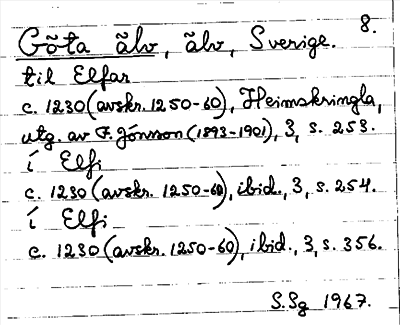 8.
Göta älv, älv, Sverige.
til Elfar
c. 1230 (avskr. 1250-60), Heimskringla,
utg. av F. Jónsson (1893-1901), 3, s. 253.
í Elfi
c. 1230 (avskr. 1250-60), ibid., 3, s. 254.
í Elfi
c. 1230 (avskr. 1250-60), ibid., 3, s. 356.
S.Sg 1967.